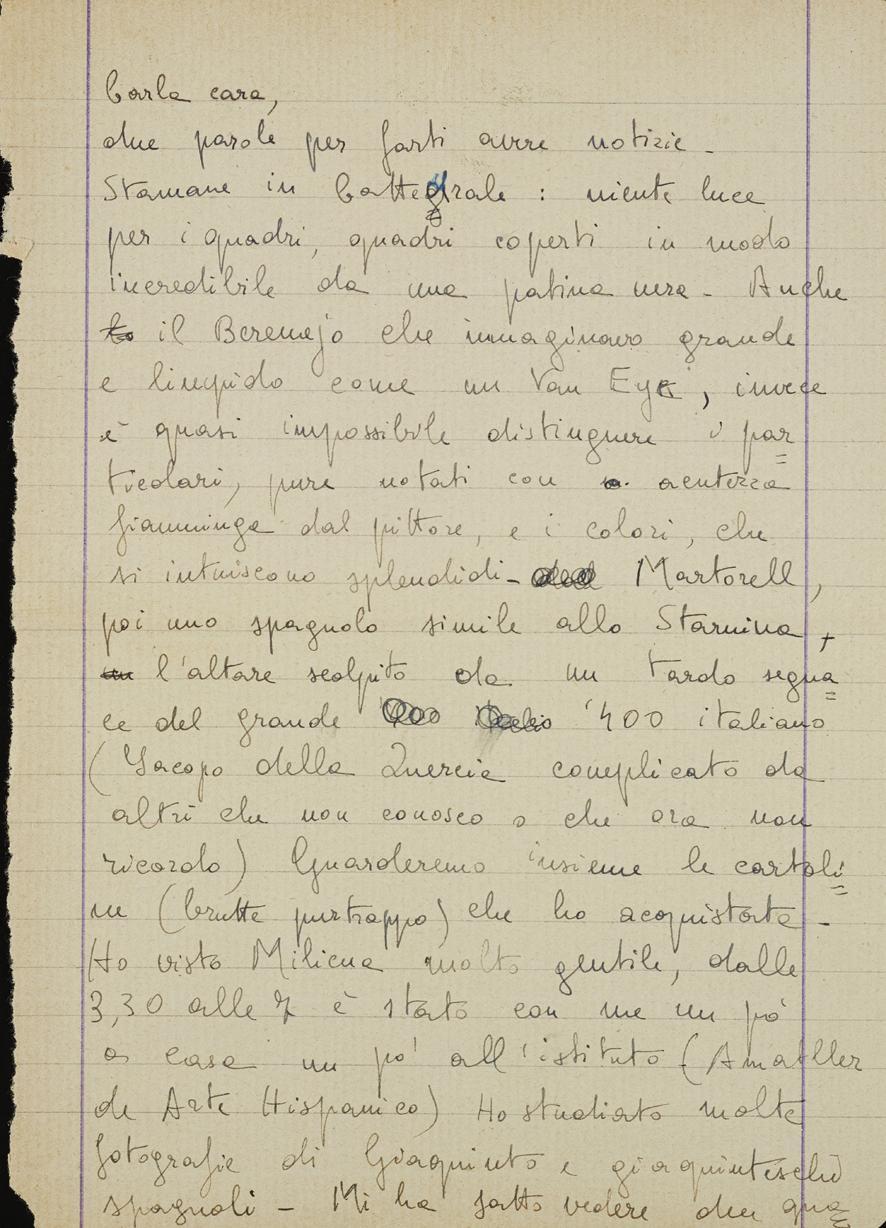 Carla cara,
due parole per farti avere notizie -
Stamane in Cattedrale : niente luce
per i quadri, quadri coperti in modo
incredibile da una patina nera - Anche
lo il Beremejo che immaginavo grande
e limpido come un Van Eyck , invece
è quasi impossibile distinguere i par=
ticolari, pure notati con a acutezza
fiamminga dal pittore, e i colori, che
si intuiscono splendidi - Martorell,
poi uno spagnolo simile allo Starnina,
un l'altare scolpito da un tardo segua=
ce del grande '400 italiano
(Jacopo della Quercia complicato da
altri che non conosco o che ora non
ricordo) Guarderemo insieme le cartoli=
ne (brutte purtroppo) che ho acquistate -
Ho visto Miliena molto gentile, dalle
3,30 alle 7 è stato con me un pò
a casa un po' all'istituto (Amatller
de Arte Hispanico) Ho studiato molte
fotografie di Giaquinto e giaquinteschi
spagnoli - Mi ha fatto vedere due qua=